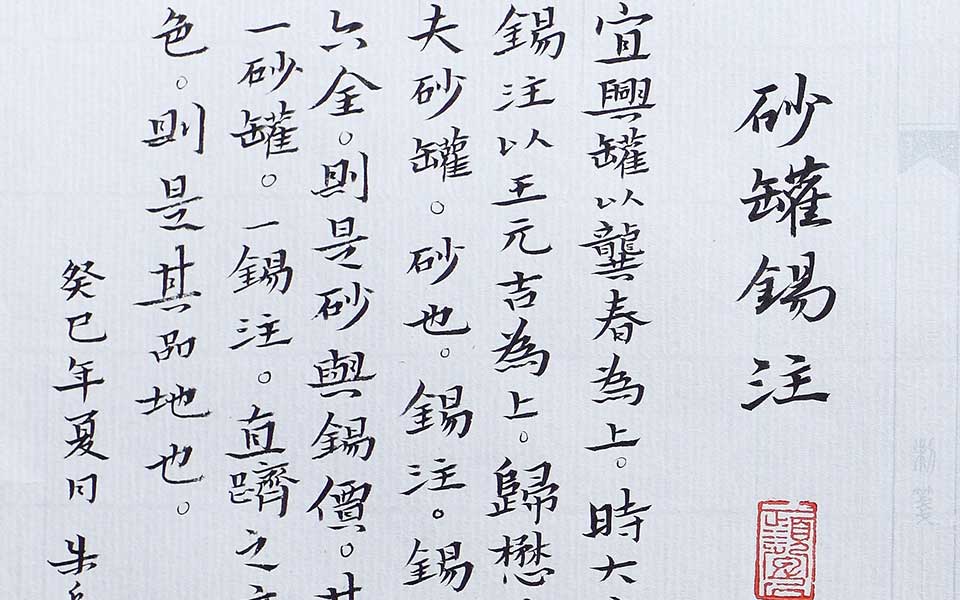 砂罐錫注
宜興罐以龔春為上。時大
錫注以王元吉為上。歸懋
夫砂罐。砂也。錫注。錫
六金。則是砂與錫價。其
一砂罐。一錫注。直躋之
色。則是其品地也。
癸巳年夏日朱